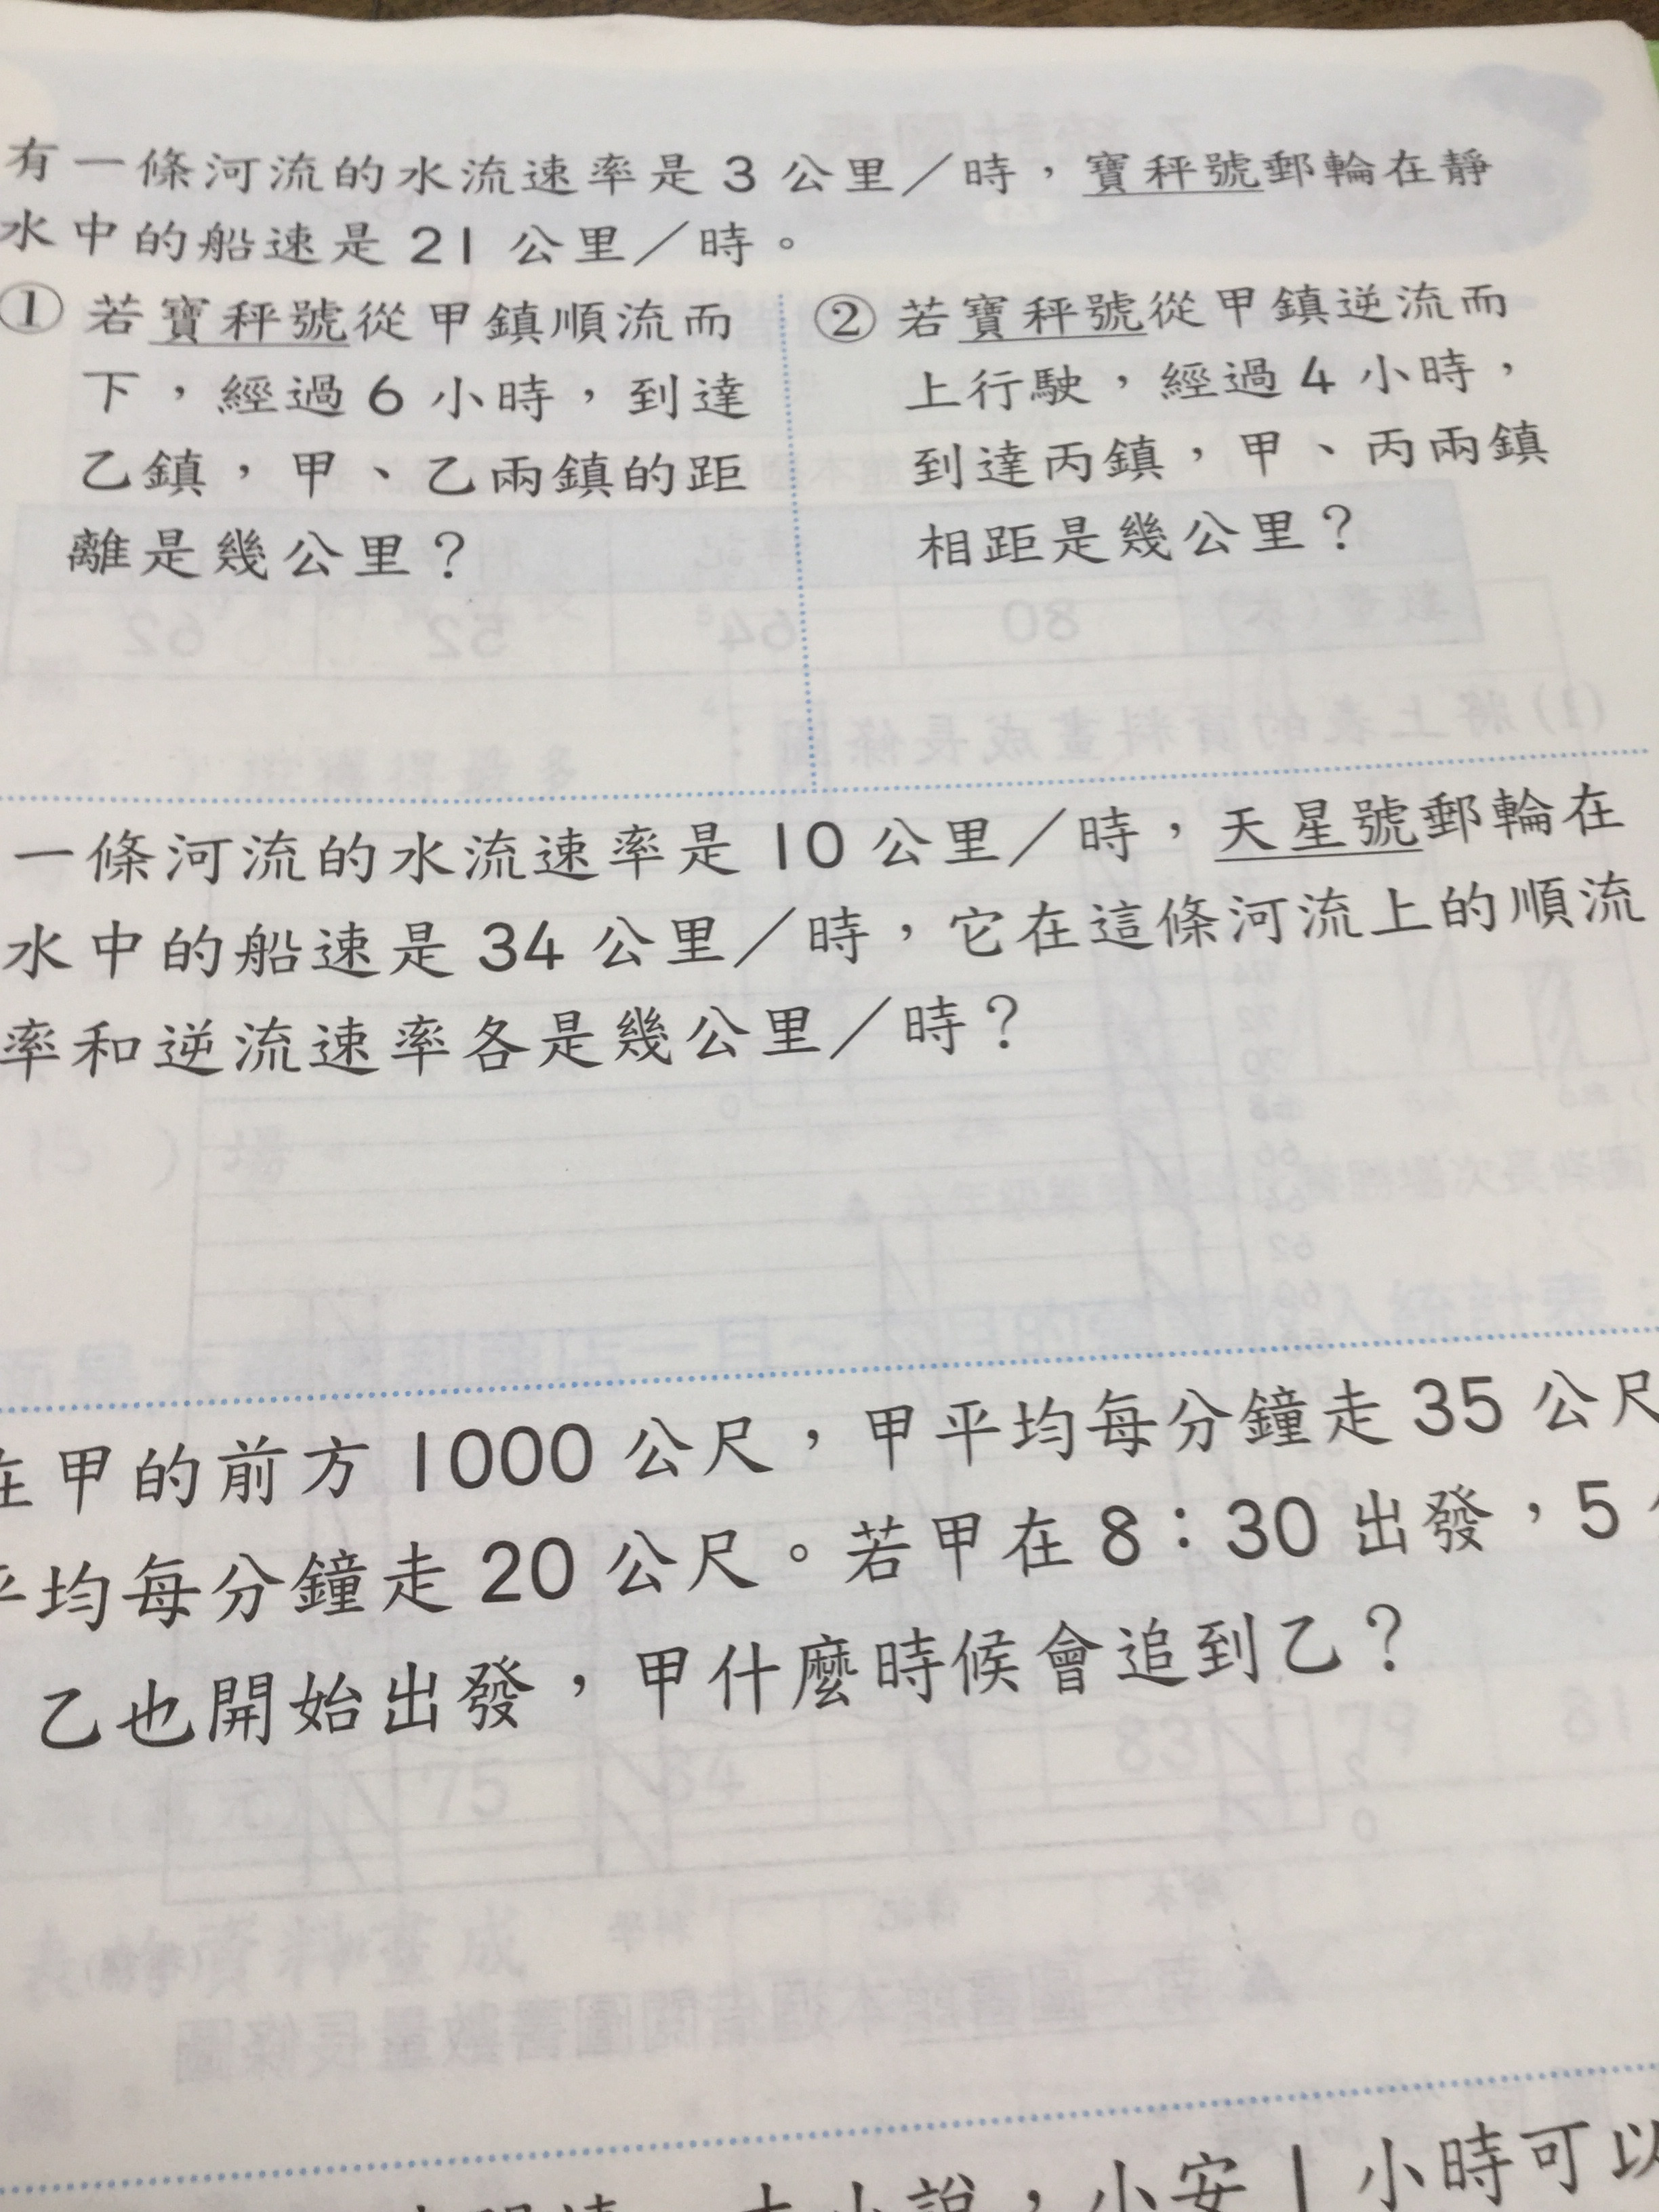 有一條河流的水流速率是3公里／時，寶秤號郵輪在靜
水中的船速是21公里／時。
①若寶秤號從甲鎮順流而
下，經過6小時，到達
乙鎮，甲、乙兩鎮的距
離是幾公里？
②若寶秤號從甲鎮逆流而
上行駛，經過4小時，
到達丙鎮，甲、丙兩鎮
相距是幾公里？
一條河流的水流速率是10公里／時，天星號郵輪在
水中的船速是34公里／時，它在這條河流上的順流
率和逆流速率各是幾公里／時？
在甲的前方1000公尺，甲平均每分鐘走35公尺
平均每分鐘走20公尺。若甲在8：30出發，5
乙也開始出發，甲什麼時候會追到乙？
小說，小安1小時可以